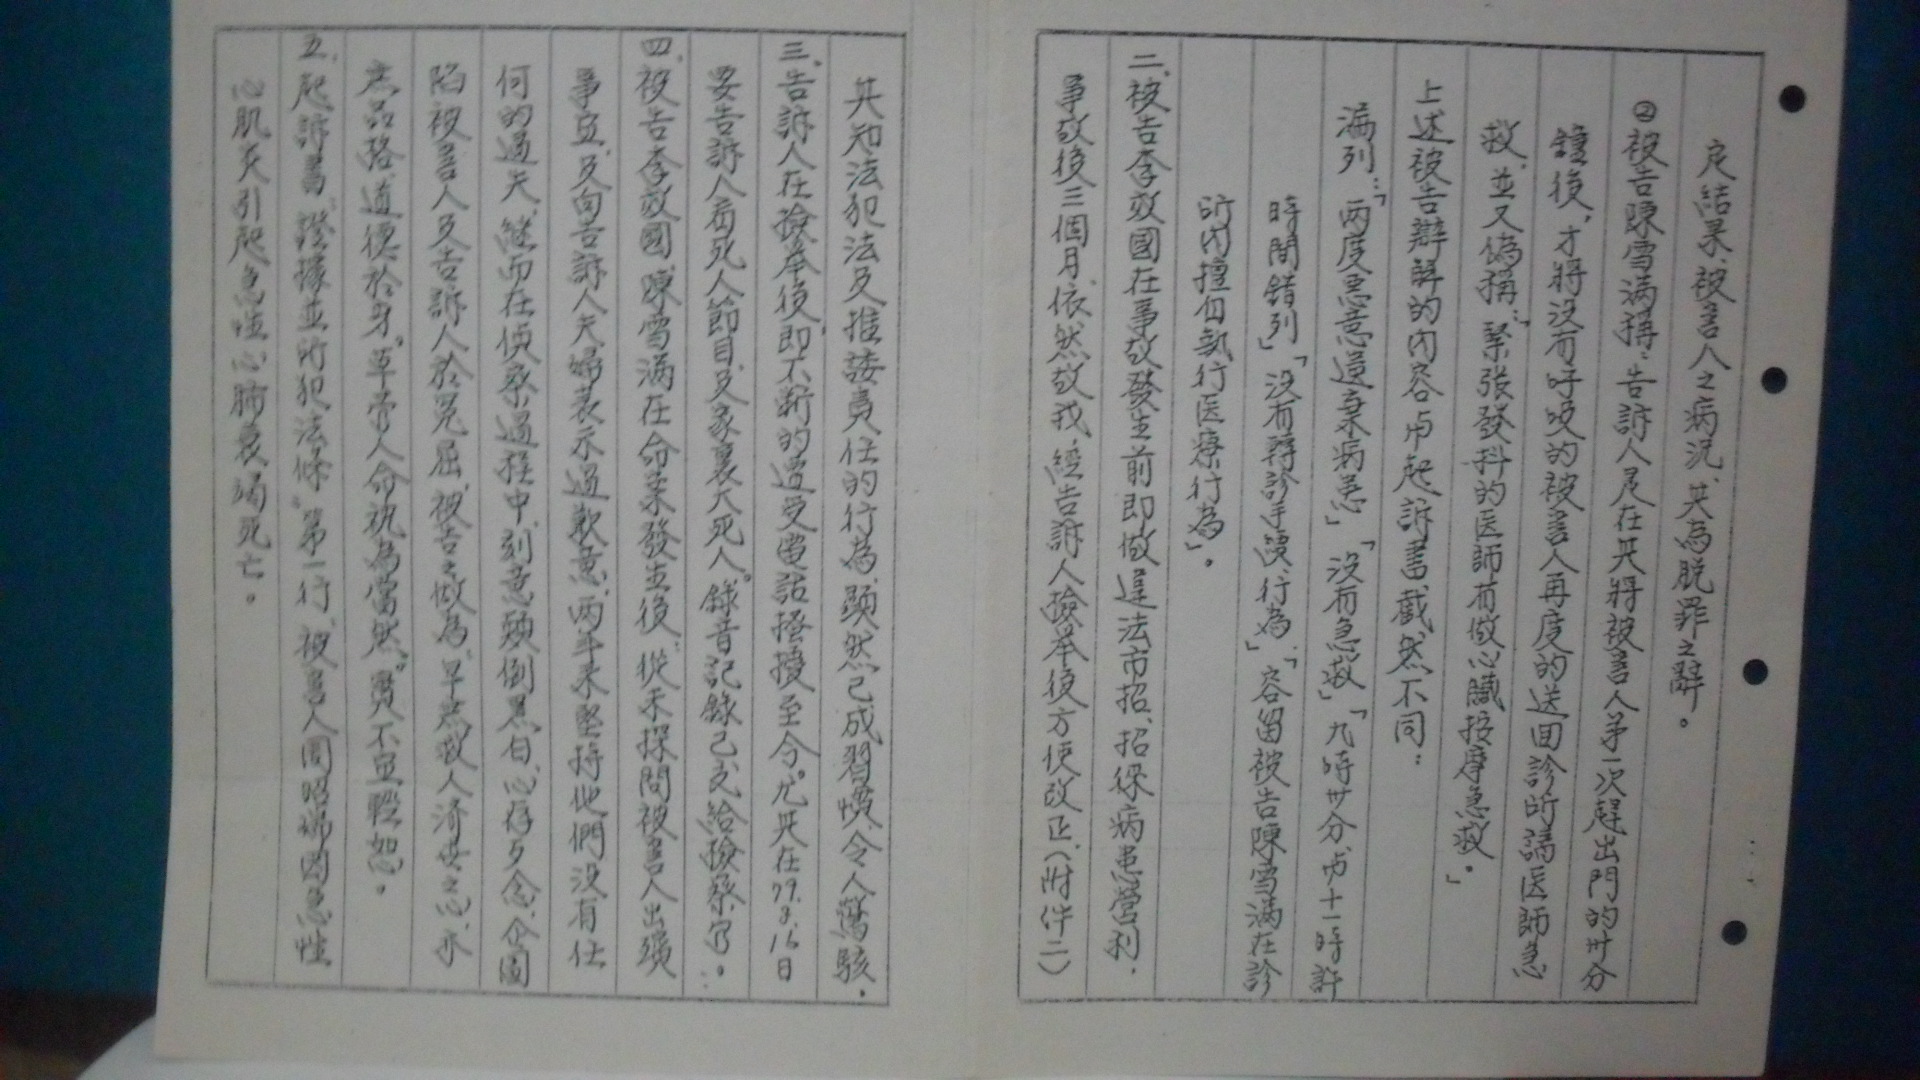 定結果、被害人之病況、其為脫罪之辭。
②被告陳雪滿稱：告訴人是在其將被害人第一次趕出門的卅分
鐘後，才將沒有呼吸的被害人再度的送回診所請医師急
救，並又偽稱：「緊張發抖的医師有做心臟按摩急救。」
上述被告辯解的內容与起訴書截然不同：
漏列：「兩度惡意遺棄病患」「沒有急救」「九時卅分与十一時許
時間錯列」「沒有轉診手續行為」「容留被告陳雪滿在診
所內擅自執行医療行為」。
二、被告李效國在事故發生前即做違法市招、招徠病患營利，
事故後三個月、依然故我，經告訴人檢举後方便改正（附件二）
其知法犯法及推諉責任的行為，顯然已成習慣，令人驚駭，
三、告訴人在檢举後，即不斷的遭受電話搔擾至今。尤其在79.3.16日
要告訴人看死人節目、及家裏大死人。錄音記錄已交給檢察官。
四、被告李效國、陳雪滿在命案發生後，從未探問被害人出殯
事宜、及向告訴人夫婦表示過歉意，兩年來堅持他們没有任
何的過失，継而在偵察過程中，刻意顛倒黑白、心存歹念、企圖
陷被害人及告訴人於冤屈，被告之做為，早無救人濟世之心，亦
無品格、道德於身。草菅人命視為當然。實不宜輕恕。
五、起訴書，證據並所犯法條。第一行，被害人周昭娣因急性
心肌炎引起急性心肺衰竭死亡。